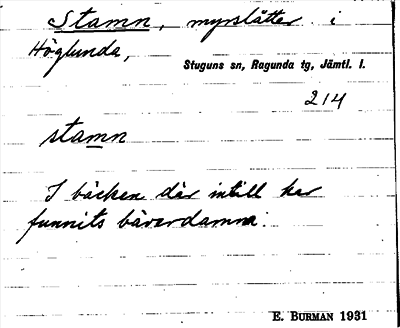 Stamn, myrslåtter i
Höglunda,
Stuguns sn, Ragunda tg, Jämtl. l.
2/4
stamn
I bäcken där intill har
funnits bäverdamna.
E. BURMAN 1931